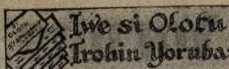 Iwe si Olotu
Irohin Yoruba: